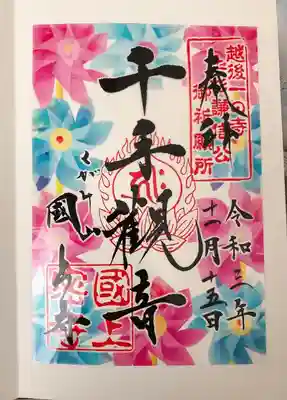 越後一の寺
上杉謙信公
御祈願所
奉拝
令和三年
十一月十五日
千手觀音
くがみ
國上